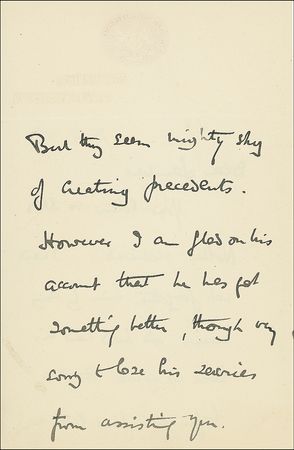 But they seem mighty shy
of creating precedents.
However I am glad on his
account that he has got
something better, though very
sorry to lose his services
from assisting you.